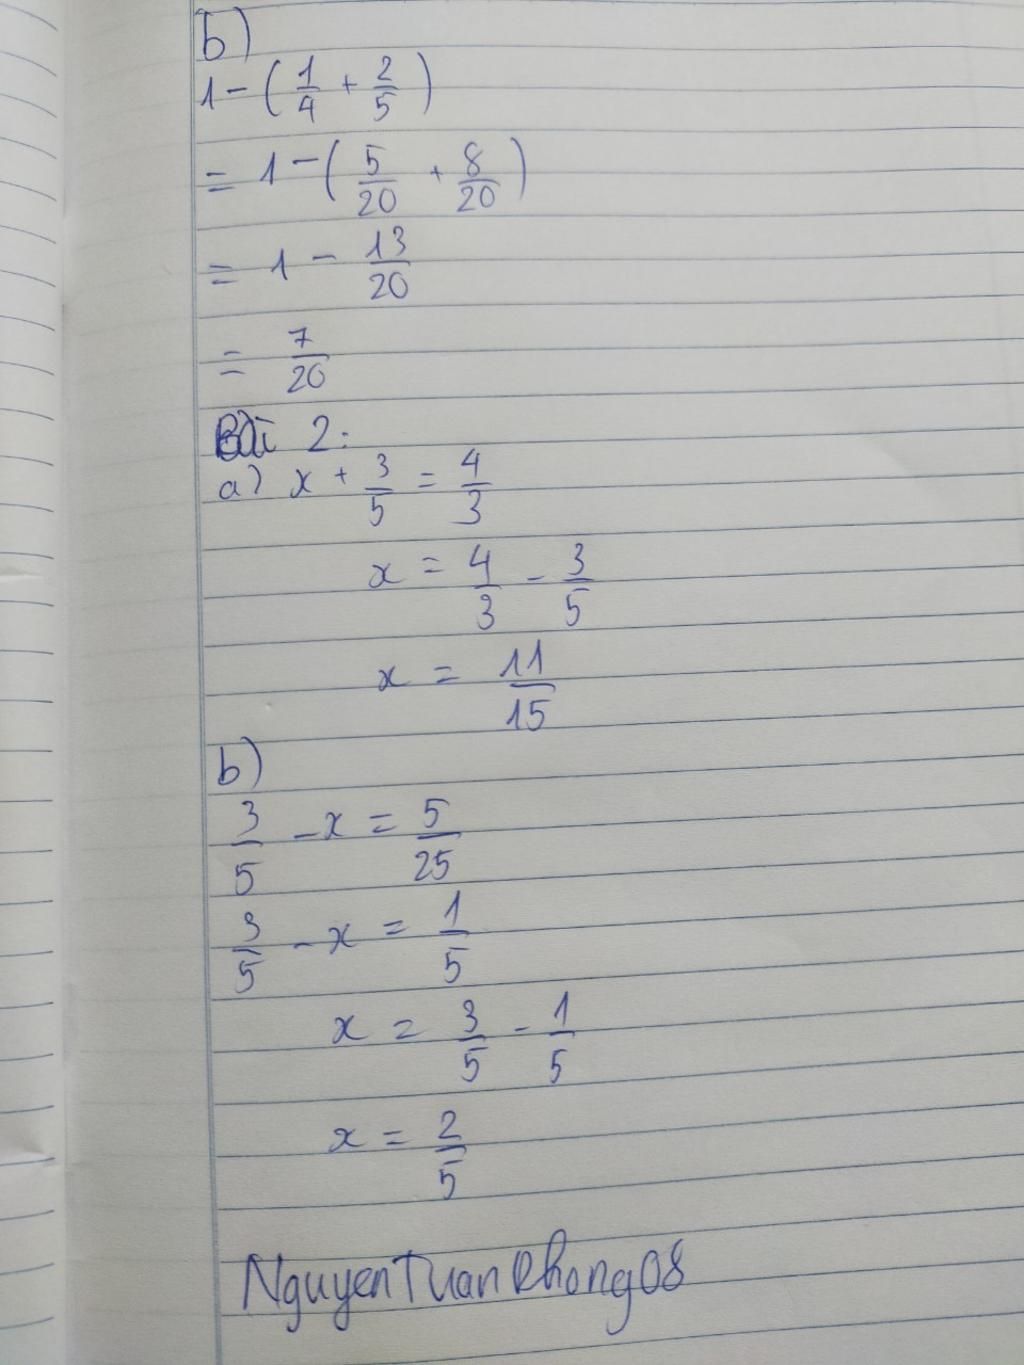 b)
1 - ( 1/4 + 2/5 )
= 1 - ( 5/20 + 8/20 )
= 1 - 13/20
= 7/20
Bài 2:
a) x + 3/5 = 4/3
x = 4/3 - 3/5
x = 11/15
b)
3/5 - x = 5/25
3/5 - x = 1/5
x = 3/5 - 1/5
x = 2/5
NguyenTuanPhong08